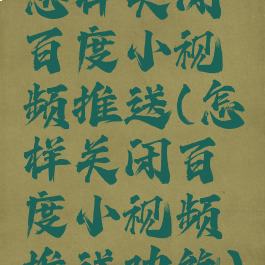 怎样关闭
百度小视
频推送(怎
样关闭百
度小视频
推送功能)